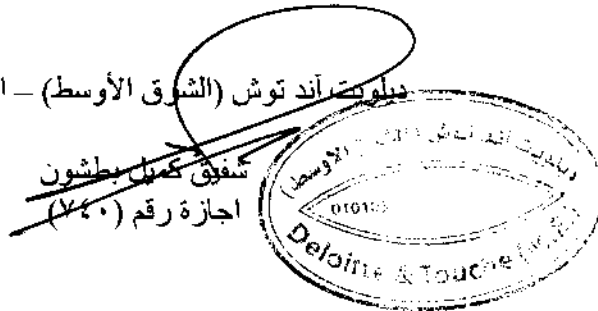 ديلويت آند توش (الشرق الأوسط) –
شفيق كميل بطشون
اجازة رقم (٧٤٠)
ديلويت آند توش (الشرق الأوسط)
010103
Deloitte & Touche